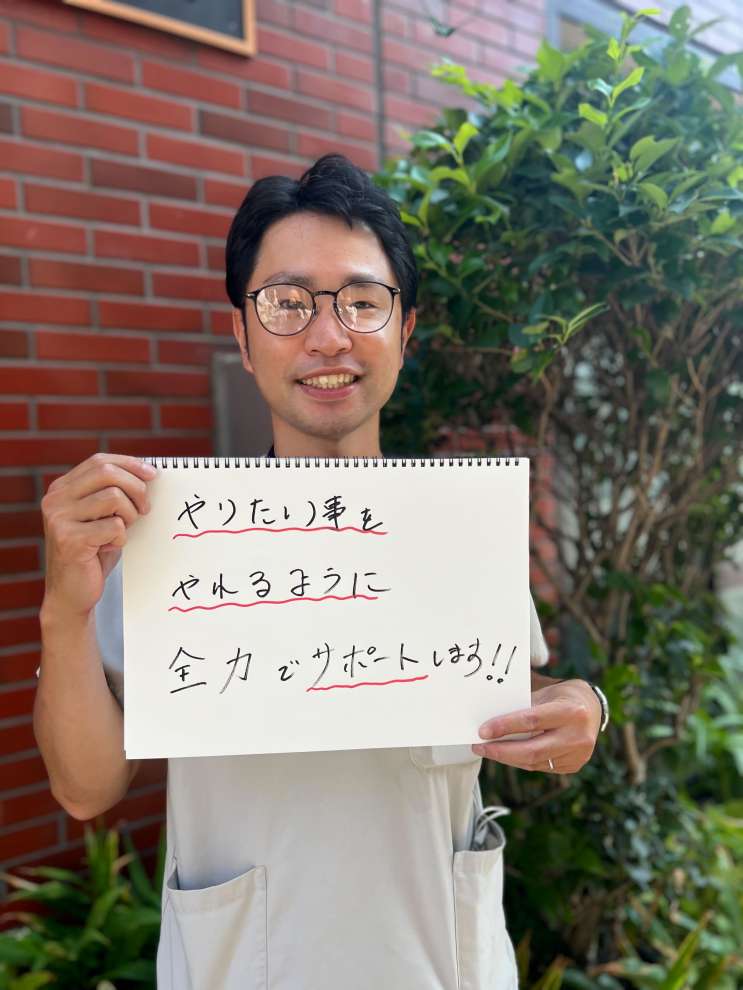 やりたい事を
やれるように
全力でサポートします!!